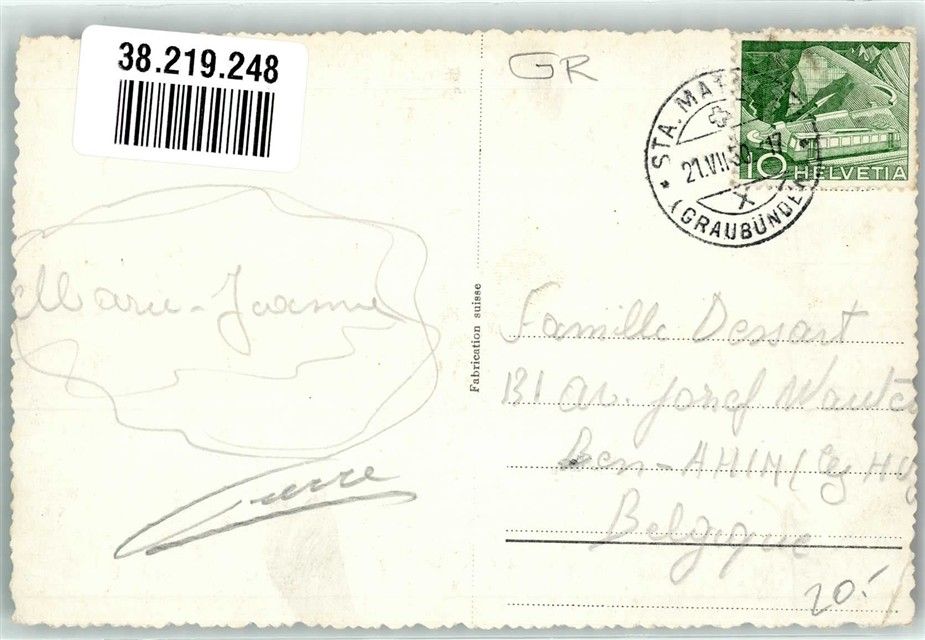 38.219.248
GR
STA. MA
21.VII.50 -17
X
(GRAUBÜNDEN)
10 HELVETIA
Marie-Jeanne
Pierre
Fabrication suisse
Famille Dessart
131 av. Josef Wauters
Ben-AHIN
Belgique
20.-